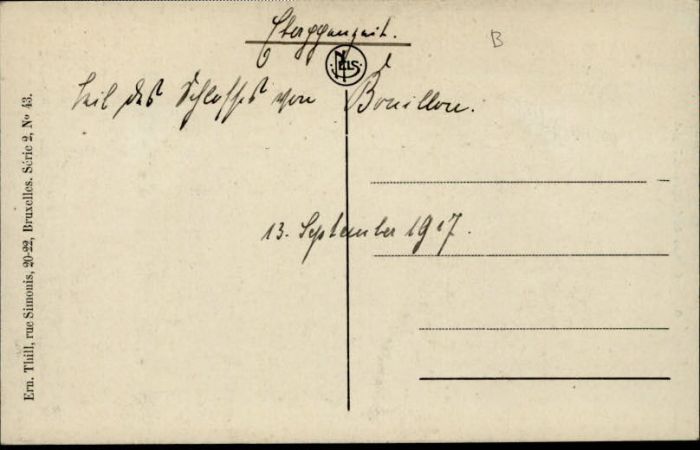 B
NELS
Teil des Schlosses von Bouillon.
13. September 1917.
Ern. Thill, rue Simonis, 20-22, Bruxelles. Série 2, Nº 43.